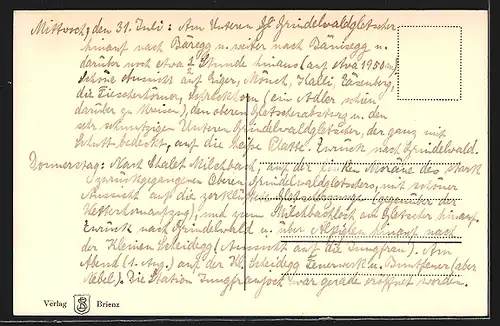 Mittwoch, den 31. Juli: Am Unteren Grindelwaldgletscher
hinauf nach Bäregg u. weiter nach Bänisegg u.
darüber noch etwa ½ Stunde hinaus (auf etwa 1950 m)
Schöne Aussicht auf Eiger, Mönch, Kalli, Zäsenberg,
die Fiescherhörner, Schreckhorn (ein Adler schien
darüber zu kreisen), den oberen Gletscherabsturz u. den
sehr schmutzigen Unteren Grindelwaldgletscher, der ganz mit
Schutt bedeckt, auf die heiße Platte. Zurück nach Grindelwald.
Donnerstag: Nach Chalet Milchbach, auf der linken Moräne des stark
zurückgegangenen Oberen Grindelwaldgletschers, mit schöner
Aussicht auf die zerklüfteten (gegenüber der
Wetterhornaufzug), und zum Milchbachloch am Gletscher hinauf.
Zurück nach Grindelwald u. über Alpiglen hinauf nach
der Kleinen Scheidegg (Aussicht auf die Jungfrau). Am
Abend (1. Aug.) auf der Kl. Scheidegg Feuerwerk u. Buntfeuer (aber
Nebel). Die Station Jungfraujoch war gerade eröffnet worden.
Verlag Brienz